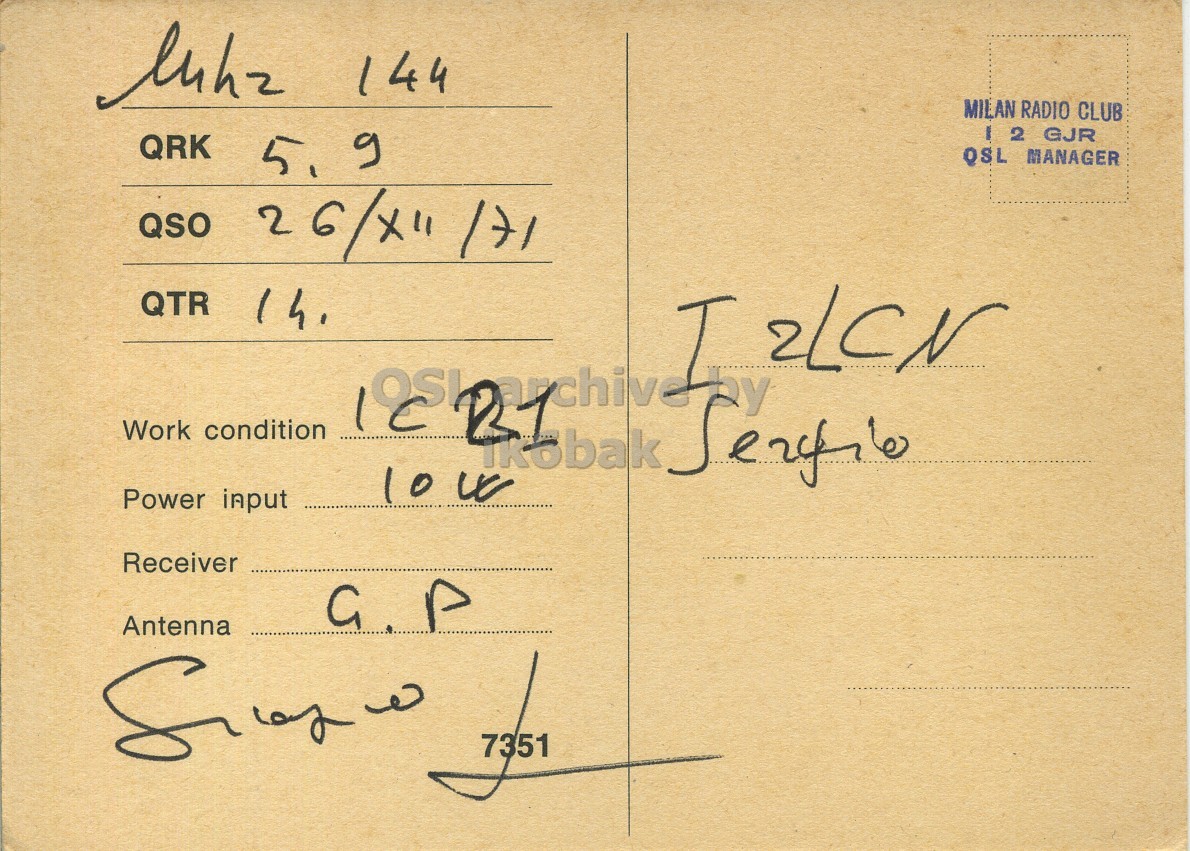 Mhz 144
QRK 5.9
QSO 26/XII/71
QTR 14.
Work condition IC
Power input 10 W
Receiver
Antenna G.P
7351
MILAN RADIO CLUB
I 2 GJR
QSL MANAGER
I 2LCN
Sergio
QSL archive by
ik6bak